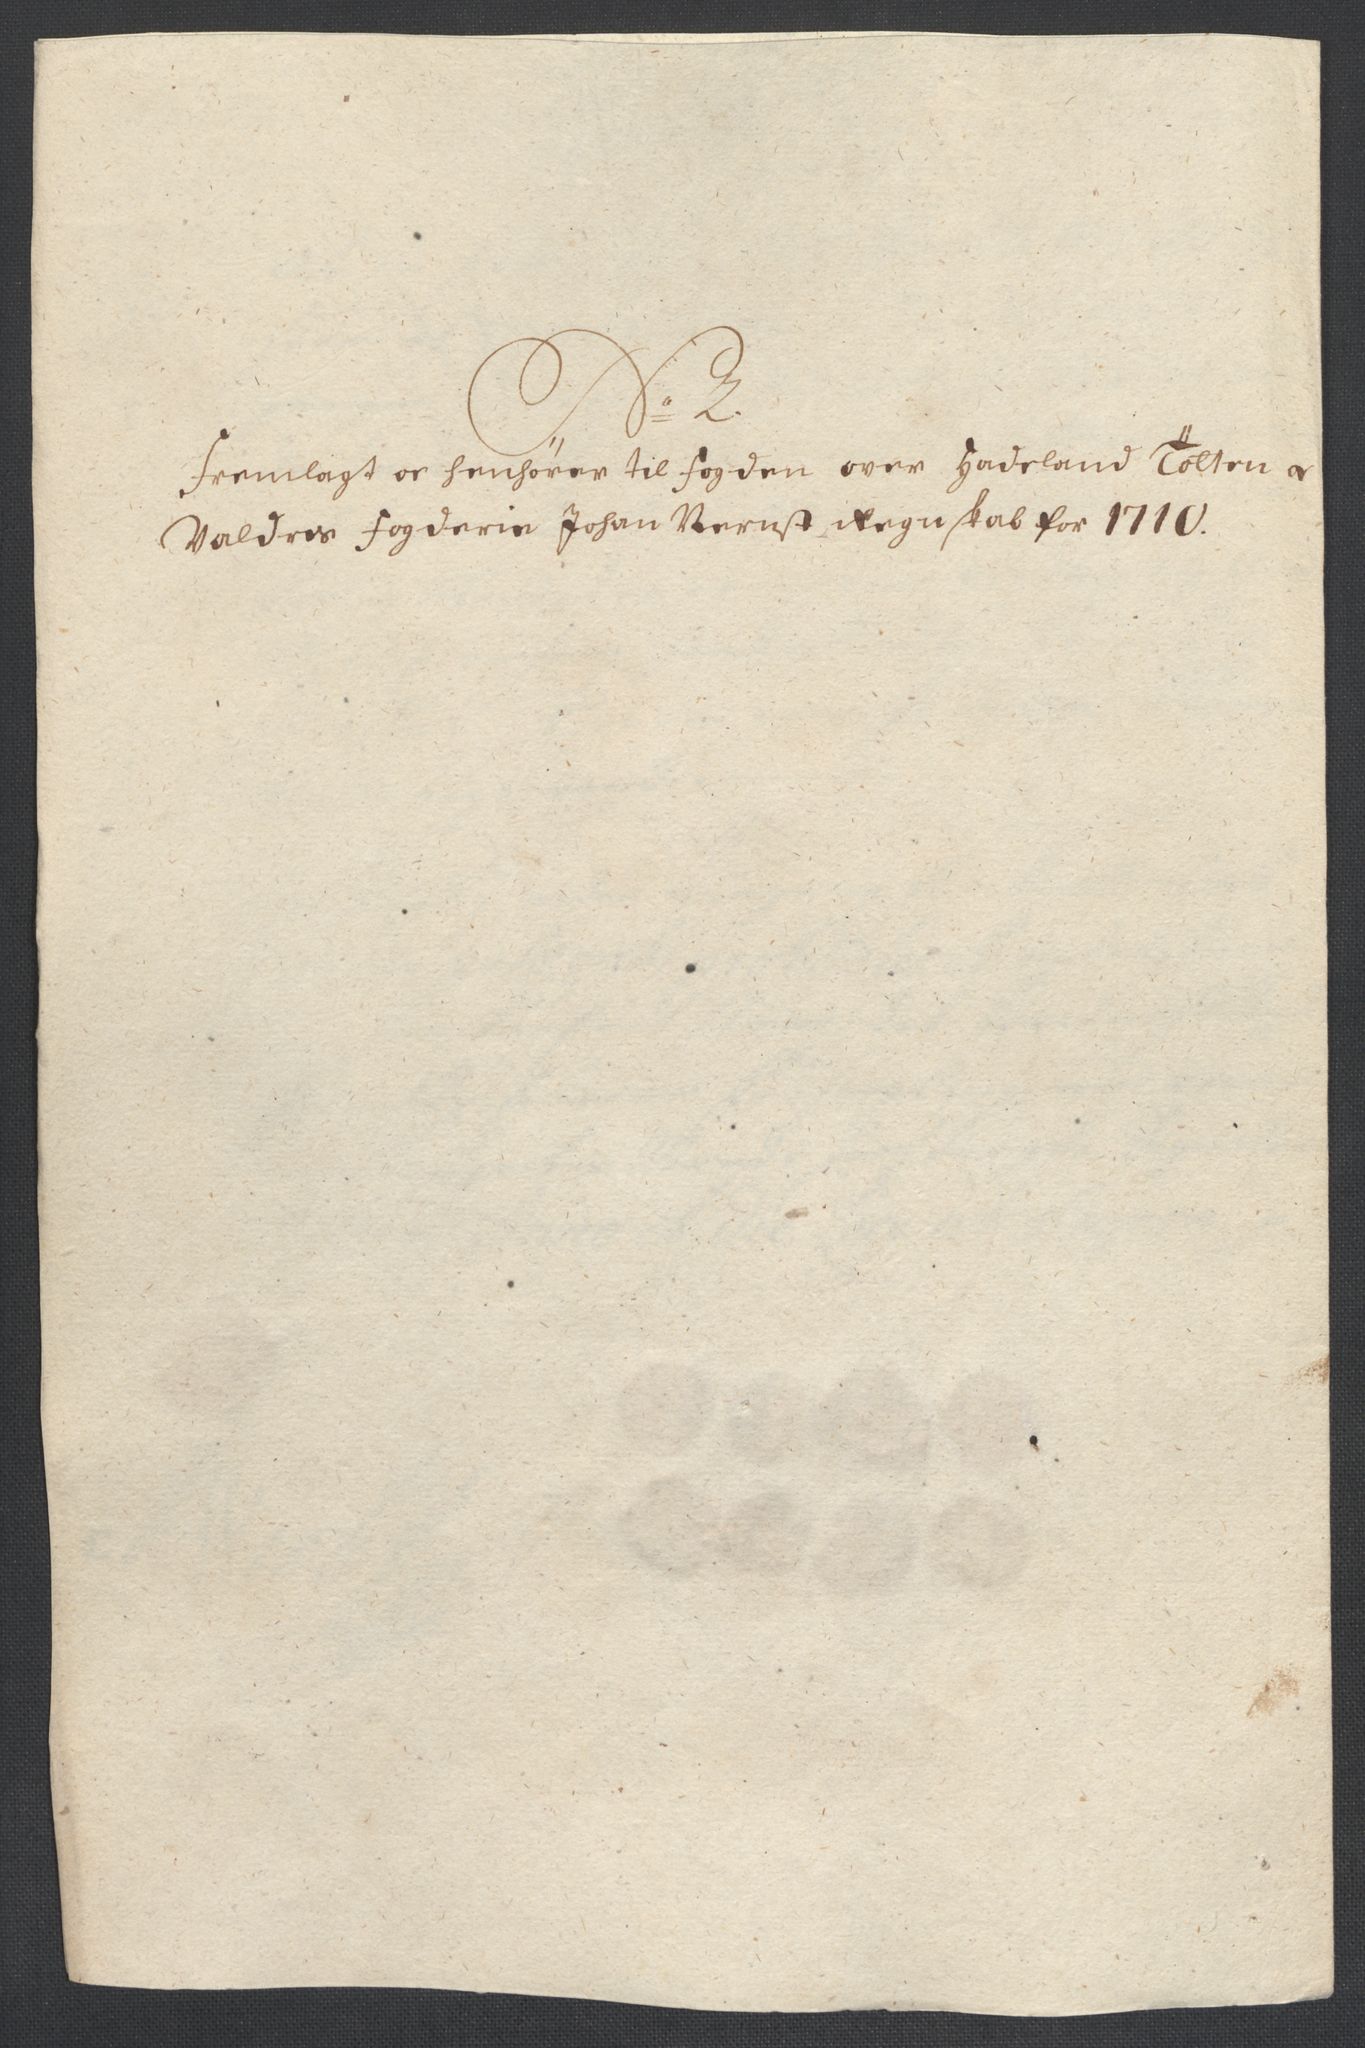 No 2.
Fremlagt oc henhører til fogden over Hadeland Tölten oc
Valdres fogderie Johan Vernst Regnskab for 1710.